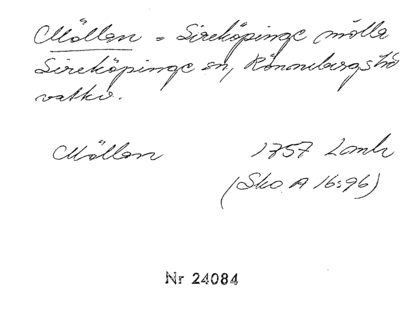 Möllan = Sireköpinge mölla
Sireköpinge sn, Rönnebergs hd
vattkv.
Möllan 1757 Lamh
(Sko A 16:96)
Nr 24084